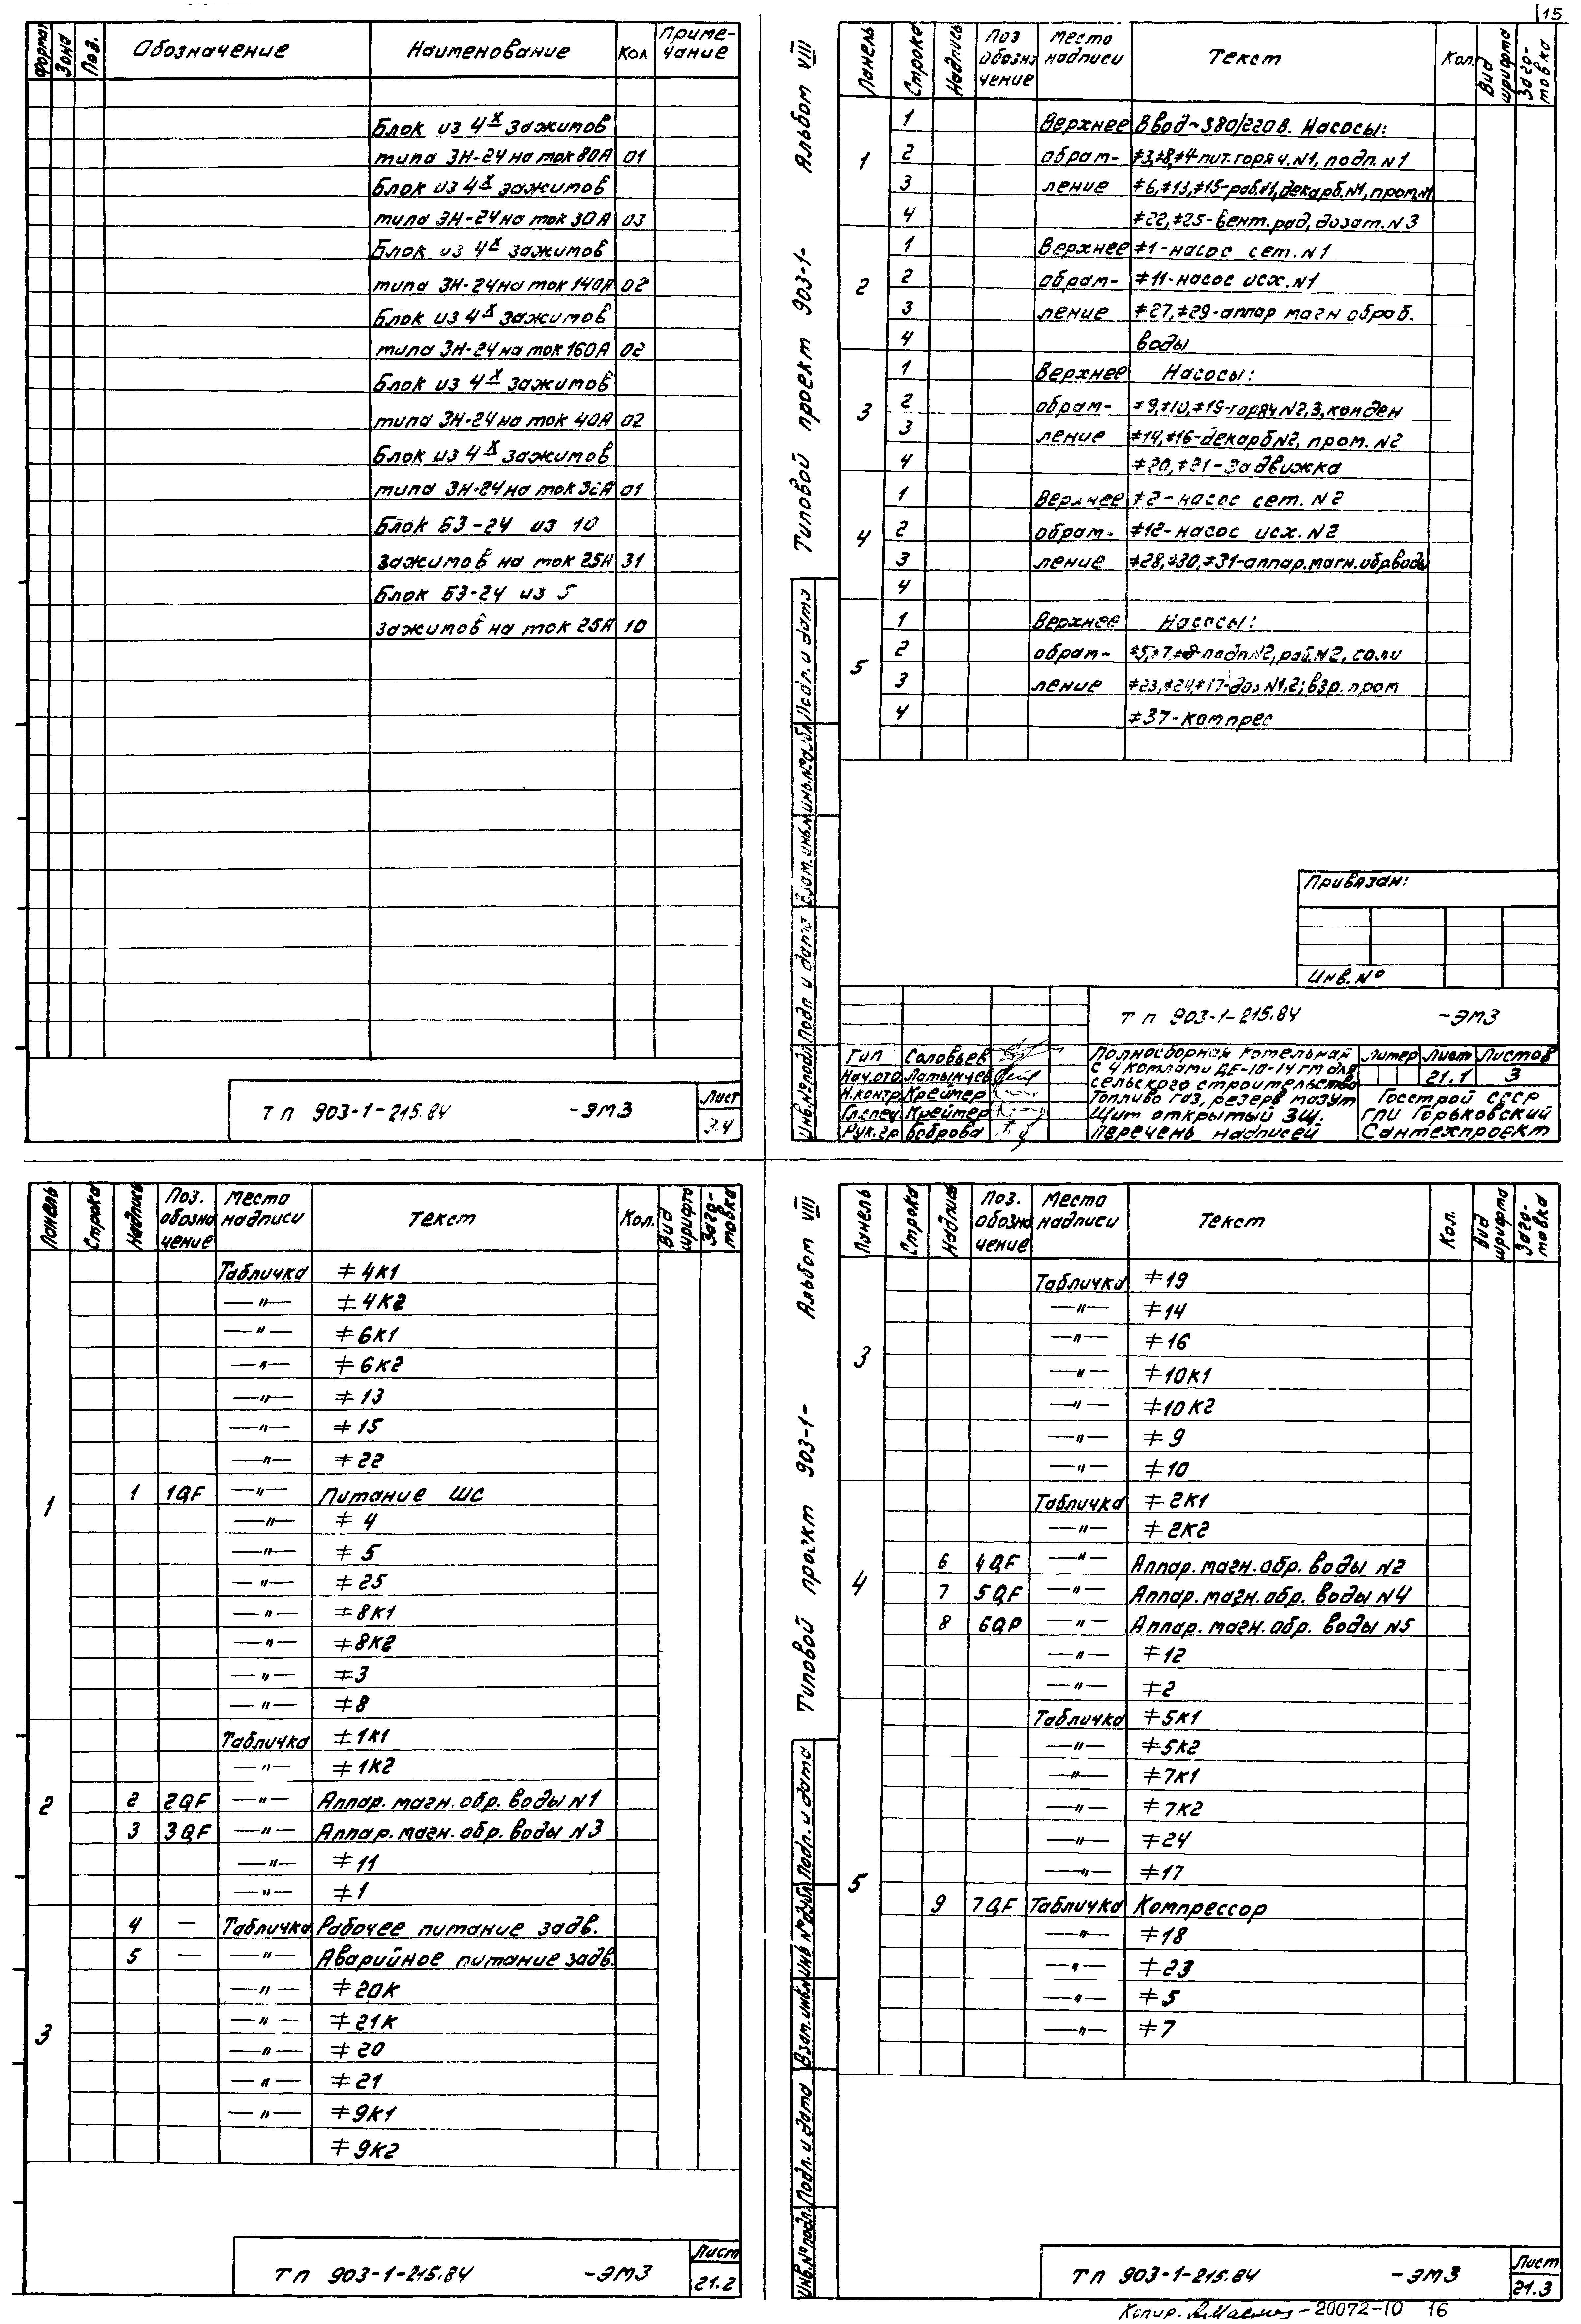 15
Формат Зона Поз. Обозначение Наименование Кол Приме-чание
Блок из 4х зажимов
типа ЗН-24 на ток 80А 01
Блок из 4х зажимов
типа ЗН-24 на ток 30А 03
Блок из 4х зажимов
типа ЗН-24 на ток 140А 02
Блок из 4х зажимов
типа ЗН-24 на ток 160А 02
Блок из 4х зажимов
типа ЗН-24 на ток 40А 02
Блок из 4х зажимов
типа ЗН-24 на ток А 01
Блок БЗ-24 из 10
зажимов на ток 25А 31
Блок БЗ-24 из 5
зажимов на ток 25А 10
ТП 903-1-215.84 -ЭМЗ
Лист
3.4
Альбом VIII
Типовой проект 903-1-
Панель Строка Надпись Поз обозна чение Место надписи Текст Кол. Вид шрифта Заго-товка
1
1 Верхнее Ввод ~380/220В. Насосы:
2 обрам- ≠3,≠8,≠4-пит.горяч.N1, подп.N1
3 ление ≠6,≠13,≠15-раб.N1,декарб.N1,пром.N1
4 ≠22,≠25-вент.рад,дозат.N3
2
1 Верхнее ≠1-насос сет.N1
2 обрам- ≠11-насос исх.N1
3 ление ≠27,≠29-аппар магн обраб.
4 воды
3
1 Верхнее Насосы:
2 обрам- ≠9,≠10,≠19-горяч N2,3,конден
3 ление ≠14,≠16-декарб N2, пром.N2
4 ≠20,≠21-Задвижка
4
1 Верхнее ≠2-насос сет. N2
2 обрам- ≠12-насос исх. N2
3 ление ≠28,≠30,≠31-аппар.магн.обр.воды
4
5
1 Верхнее Насосы:
2 обрам- ≠5,≠7, подп.N2, раб.N2, соли
3 ление ≠23,≠24,≠17-доз N1,2; взр. пром
4 ≠37-компрес
Привязан:
Инв.№
ТП 903-1-215.84 -ЭМЗ
Гип Соловьев
Нач.отд Латынцев
Н.контр. Крейтер
Гл.спец Крейтер
Рук.гр Боброва
Полносборная котельная
с 4 котлами ДЕ-10-14 гм для
сельского строительства
Топливо газ, резерв мазут
Щит открытый ЗЩ.
Перечень надписей
Литер Лист Листов
21.1 3
Госстрой СССР
ГПИ Горьковский
Сантехпроект
Инв.№ подл. Подп. и дата Взам.инв.№ Инв.№ дубл. Подп. и дата
Панель Строка Надпись Поз. обозна чение Место надписи Текст Кол. Вид шрифта Заго-товка
1
Табличка ≠4К1
—"— ≠4К2
—"— ≠6К1
—"— ≠6К2
—"— ≠13
—"— ≠15
—"— ≠22
1 1QF —"— Питание ШС
—"— ≠4
—"— ≠5
—"— ≠25
—"— ≠8К1
—"— ≠8К2
—"— ≠3
—"— ≠8
2
Табличка ≠1К1
—"— ≠1К2
2 2QF —"— Аппар.магн.обр.воды N1
3 3QF —"— Аппар.магн.обр.воды N3
—"— ≠11
—"— ≠1
3
4 — Табличка Рабочее питание задв.
5 — —"— Аварийное питание задв.
—"— ≠20К
—"— ≠21К
—"— ≠20
—"— ≠21
—"— ≠9К1
≠9К2
ТП 903-1-215.84 -ЭМЗ
Лист
21.2
Альбом VIII
Типовой проект 903-1-
Панель Строка Надпись Поз. обозна чение Место надписи Текст Кол. Вид шрифта Заго-товка
3
Табличка ≠19
—"— ≠14
—"— ≠16
—"— ≠10К1
—"— ≠10К2
—"— ≠9
—"— ≠10
4
Табличка ≠2К1
—"— ≠2К2
6 4QF —"— Аппар.магн.обр. воды N2
7 5QF —"— Аппар.магн.обр. воды N4
8 6QP —"— Аппар.магн.обр. воды N5
—"— ≠12
—"— ≠2
5
Табличка ≠5К1
—"— ≠5К2
—"— ≠7К1
—"— ≠7К2
—"— ≠24
—"— ≠17
9 7QF Табличка Компрессор
—"— ≠18
—"— ≠23
—"— ≠5
—"— ≠7
Инв.№ подл. Подп. и дата Взам.инв.№ Инв №дубл. Подп. и дата
ТП 903-1-215.84 -ЭМЗ
Лист
21.3
Копир. -20072-10 16